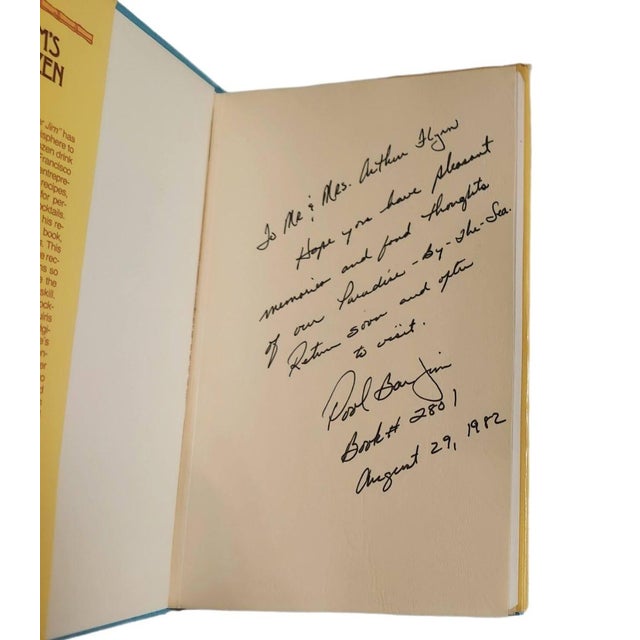 M'S
ZEN
r Jim" has
isphere to
ozen drink
Francisco
intrepre-
recipes,
for per-
cktails.
his re-
book,
This
e rec-
ns so
e the
skill.
ock-
iris
gi-
e
on-
er
k
d
To Mr & Mrs. Arthur Flynn
Hope you have pleasant
memories and fond thoughts
of our Paradise-By-The-Sea.
Return soon and often
to visit.
Pool Bar Jim
Book# 2801
August 29, 1982